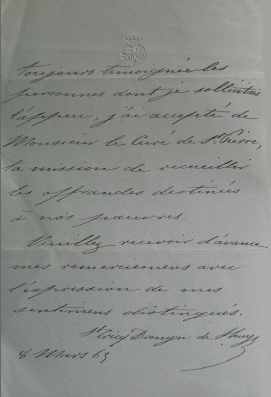 toujours témoignée les
personnes dont je sollicitais
l'appui, j'ai accepté de
Monsieur le Curé de St. Pierre,
la mission de recueillir
les offrandes destinées
à nos pauvres.
Veuillez recevoir d'avance
mes remerciemens avec
l'expression de mes
sentimens distingués.
St Cricq Drouyn de Lhuys
8 Mars 65